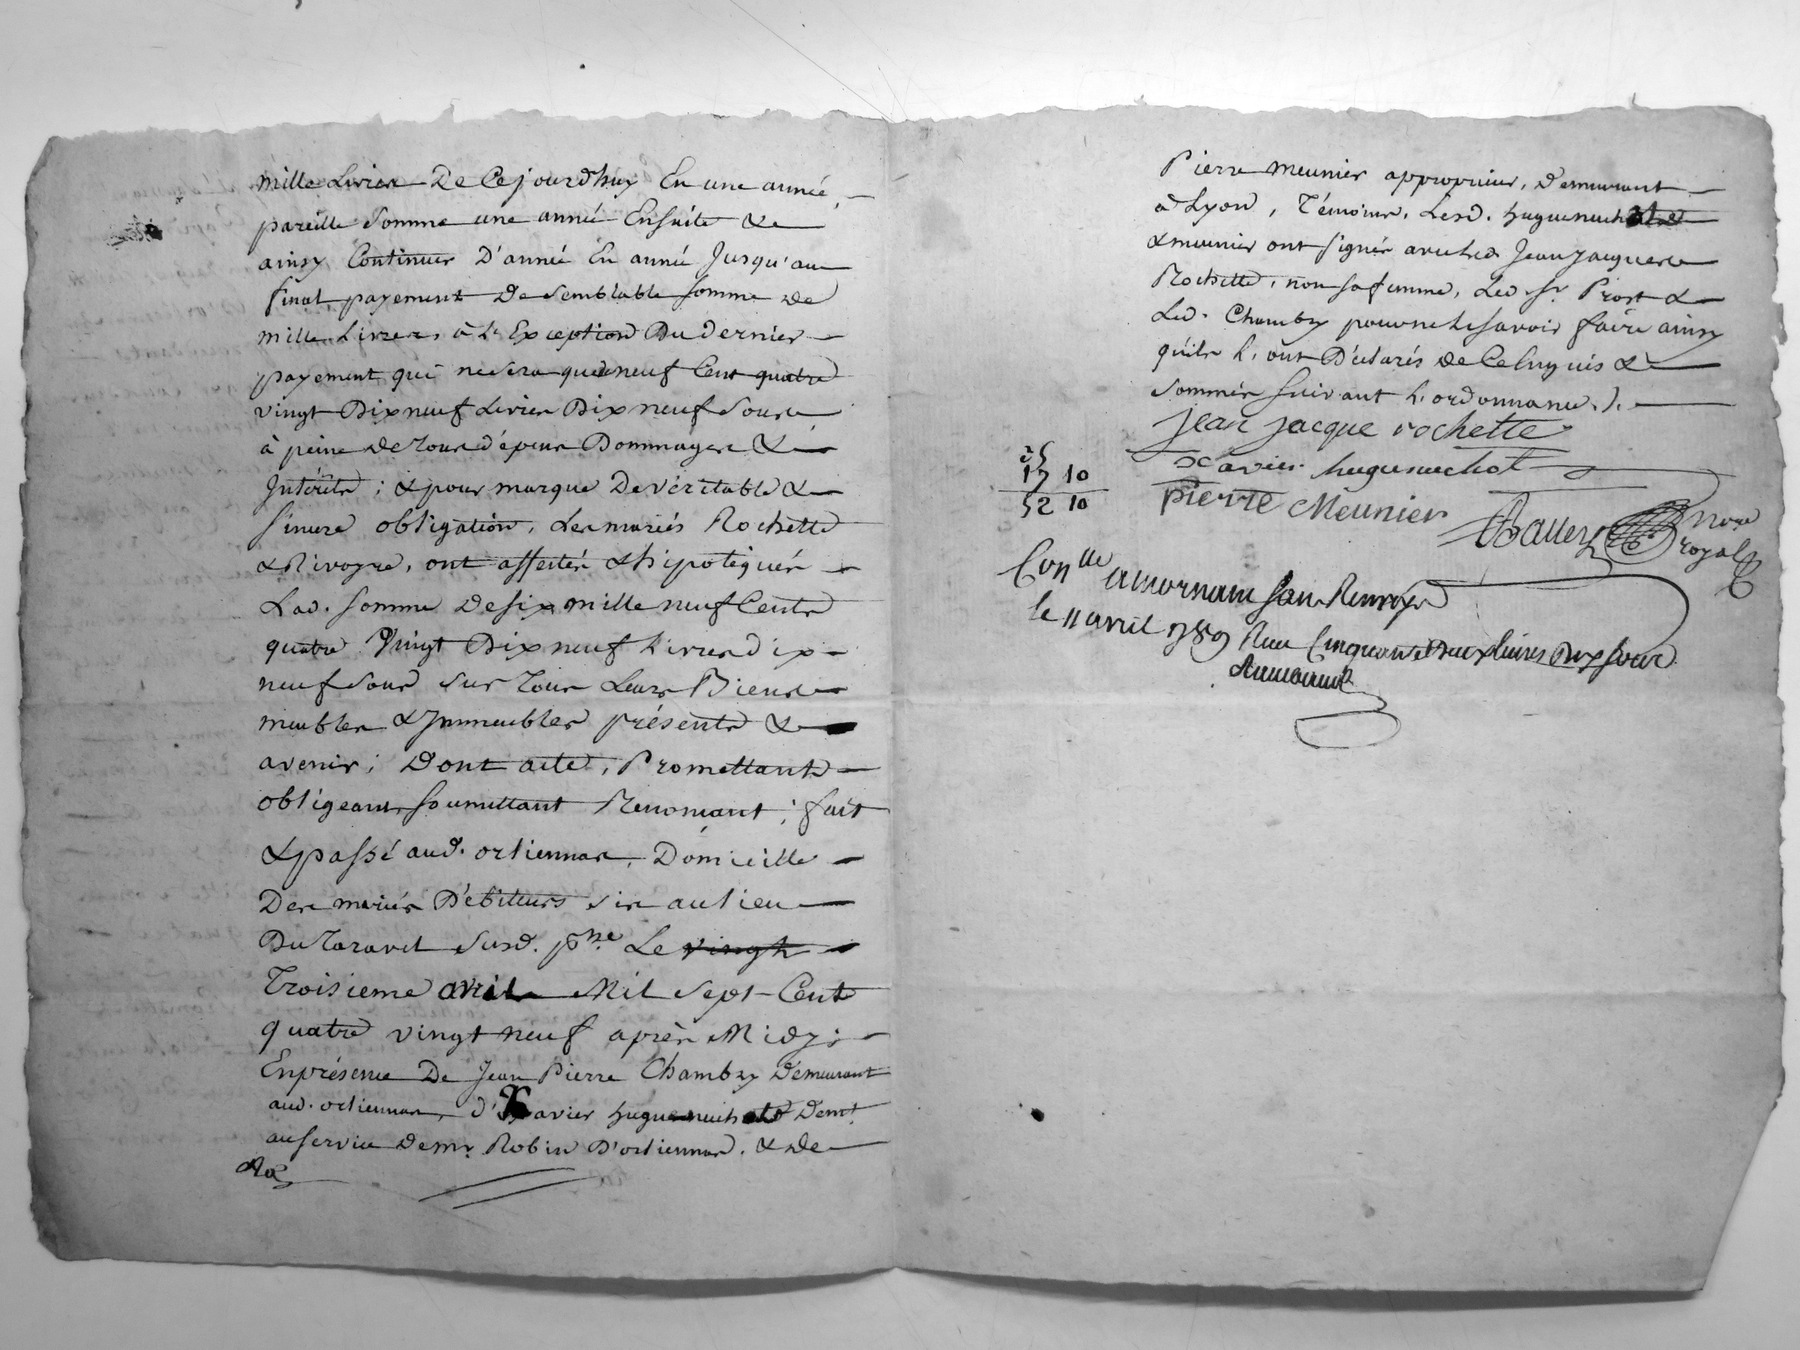 mille Livres De Cejourdhuy En une année,
pareille Somme une année Ensuite &
ainsy Continuer D'année En année Jusqu'au
final payement De Semblable Somme de
mille Livres, à L'Exception Du dernier
payement qui ne sera que de neuf Cent quatre
vingt Dix neuf Livres Dix neuf Sous
à peine de tous dépens Dommages &
Intérêts ; & pour marque De véritable &
sincere obligation, Les mariés Rochette
& Rivoyre, ont affectés & hipotéqués
Lad. Somme de six mille neuf Cents
quatre Vingt Dix neuf Livres dix
neuf Sous sur Tous Leurs Biens
meubles & Immeubles présents &
avenir ; Dont acte, Promettant
obligeant Soumettant Renonçant ; fait
& passé aud. orliennas, Domicille
Des mariés Débiteurs sis au Lieu
Du Tararet Susd. psse Le vingt
Troisieme avril Mil Sept Cent
quatre vingt neuf après Midy ;
En présence De Jean Pierre Chambry Demeurant
aud. orliennas, d'Xavier huguenuchot Demt
au service De mr Robin D'orliennas, & de
Pierre meunier approprieur, demeurant
à Lyon, Témoins. Lesd. huguenuchot
& meunier ont signés avec led Jean Jacques
Rochette, non sa femme, Led Sr Prost &
Led. Chambry pour ne le savoir faire ainsy
qu'ils L'ont Déclarés de Ce Enquis &
Sommés Suivant L'ordonnance ./.
jean jacque rochette
Xavier huguenuchot
25
17 10
52 10
pierre Meunier
Nore
royal
Conlle a mornant sans Renvoye
le 11 avril 1789 Recu Cinquante Deux livres Dix sous